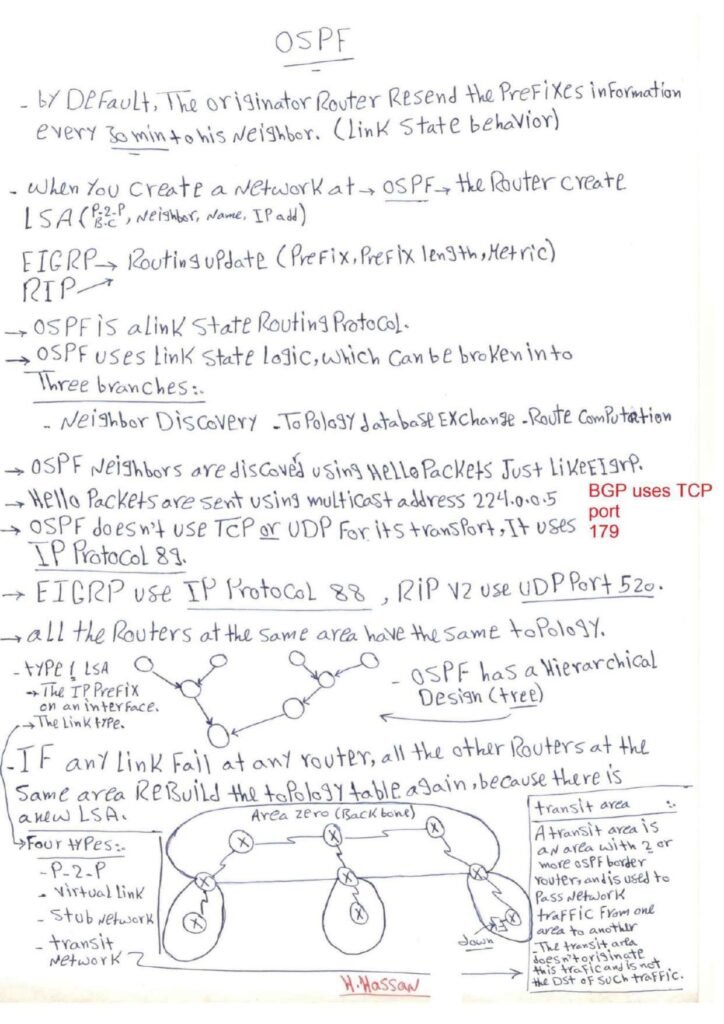 OSPF
- by Default, The originator Router Resend the Prefixes information
every 30 min to his Neighbor. (Link State behavior)
- when You Create a Network at → OSPF → the Router create
LSA (P-2-P, Neighbor, Name, IP add)
B-C
EIGRP → Routing update (Prefix, Prefix length, Metric)
RIP
→ OSPF is a link State Routing Protocol.
→ OSPF uses Link State logic, which can be broken into
Three branches:.
- Neighbor Discovery - Topology database Exchange - Route Computation
→ OSPF Neighbors are discoved using Hello Packets Just like EIgrp.
→ Hello Packets are sent using multicast address 224.0.0.5
BGP uses TCP
port
179
→ OSPF doesn't use TCP or UDP For its transport, It uses
IP Protocol 89.
→ EIGRP use IP Protocol 88 , RiP V2 use UDP Port 520.
→ all the Routers at the same area have the same topology.
- type 1 LSA
→ The IP Prefix
on an interface.
→ The Link type.
- OSPF has a Hierarchical
Design (tree)
- IF any Link Fail at any router, all the other Routers at the
Same area ReBuild the topology table again, because there is
a new LSA.
Area zero (Backbone)
X
X
X
X
X
X
X
X
X
down
→ Four types:.
- P-2-P
- Virtual link
- Stub Network
- transit
Network
transit area :.
A transit area is
an area with 2 or
more OSPF border
router, and is used to
Pass Network
traffic From one
area to another
- The transit area
doesn't originate
this trafic and is not
the DST of such traffic.
H.Hassan